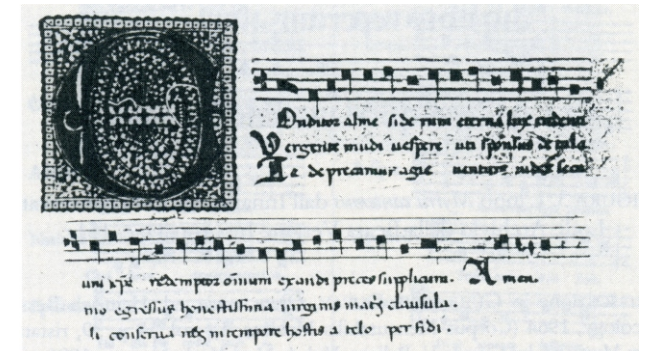 Onditor alme siderum eterna lux credenti
Vergente mundi uespere uti sponsus de tala
Te deprecamur agie uenture iudex secu
um xpe redemptor omnium exaudi preces supplicum. Amen.
mo egressus honestissima uirginis matris clausula.
li conserua nos in tempore hostis a telo perfidi.